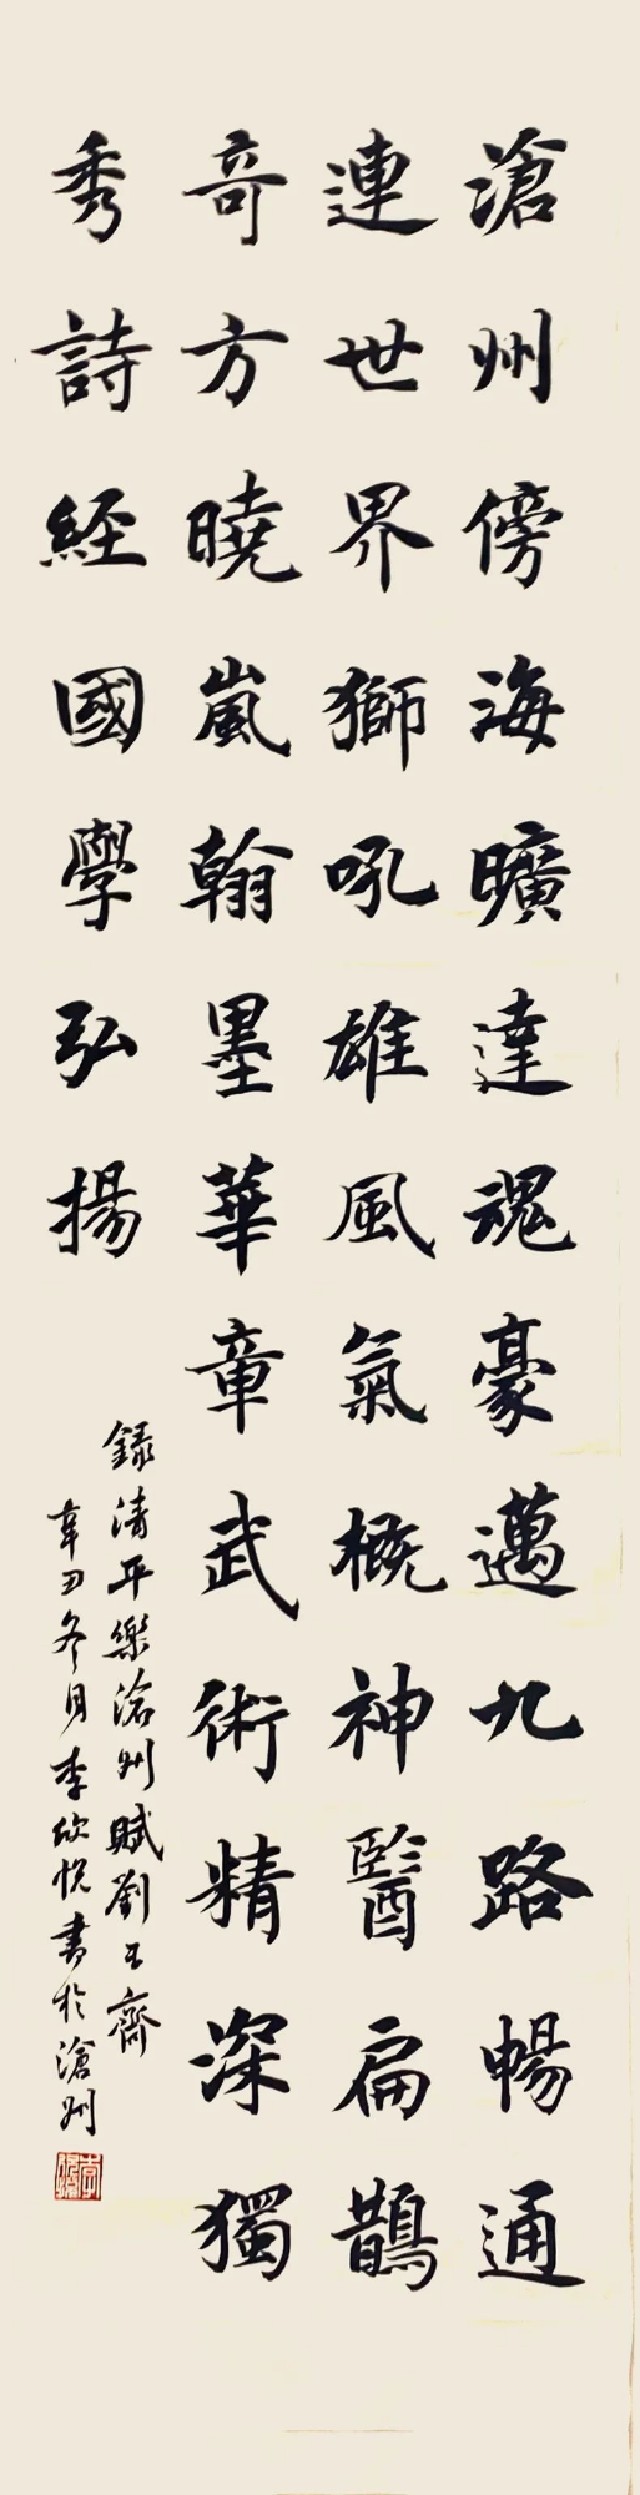 滄州傍海曠達魂豪邁九路暢通
連世界獅吼雄風氣概神醫扁鵲
奇方曉嵐翰墨華章武術精深獨
秀詩經國學弘揚
錄清平樂滄州賦劉玉齋
辛丑冬月李欣悅書於滄州